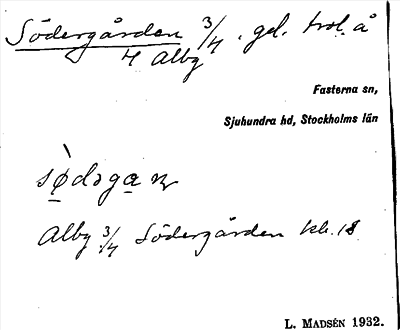 Södergården 3/4. gel. trol. å
4 Alby
Fasterna sn,
Sjuhundra hd, Stockholms län
sø̀dəga
Alby 3/4 Södergården kh. 18
L. MADSÉN 1932.